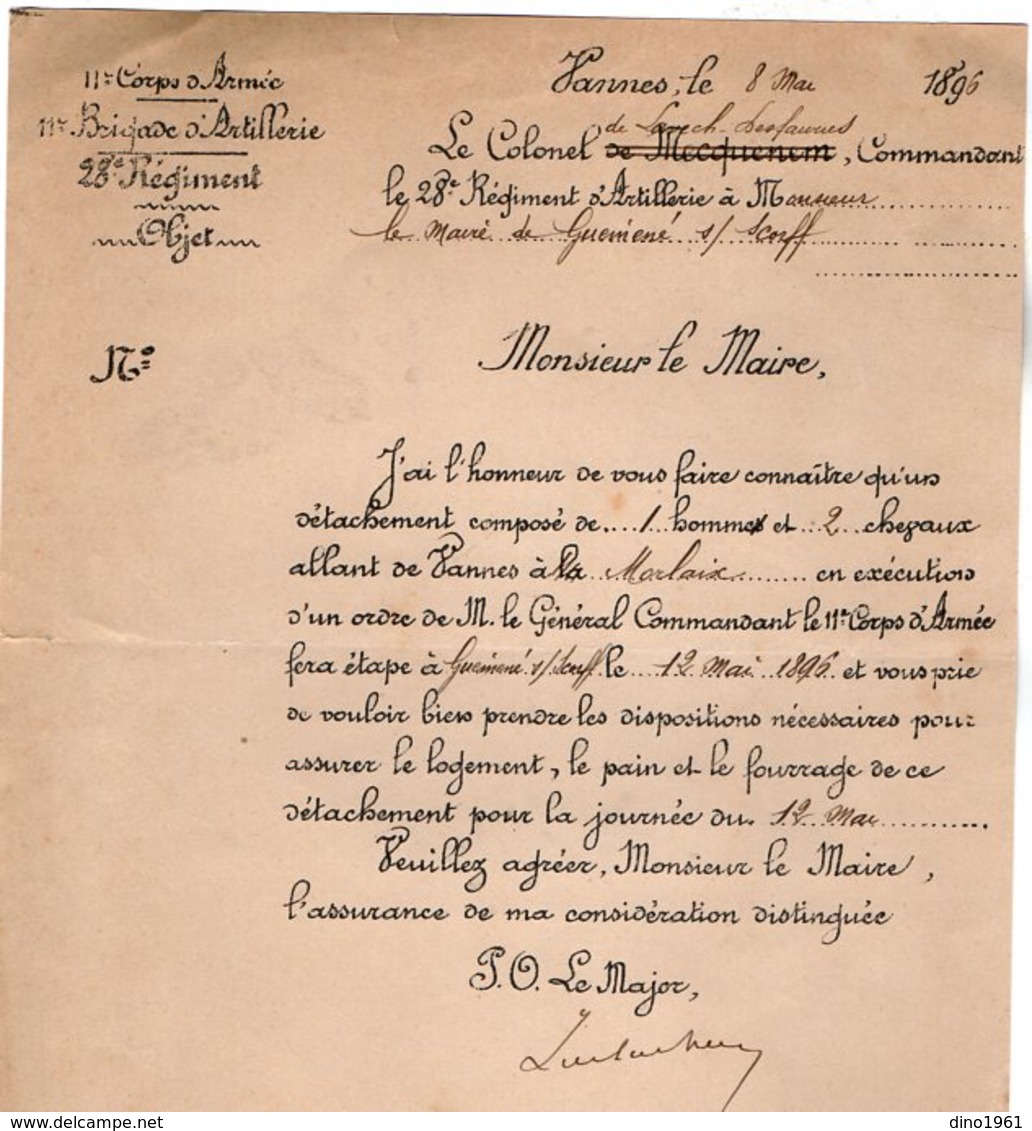 11e Corps d'Armée
11e Brigade d'Artillerie
28e Régiment
Objet
Vannes, le 8 Mai 1896
de
Le Colonel de Mecquenem, Commandant
le 28e Régiment d'Artillerie à Monsieur
le Maire de Guéméné s/ Scorff
N°
Monsieur le Maire,
J'ai l'honneur de vous faire connaître qu'un
détachement composé de 1 homme et 2 chevaux
allant de Vannes à Morlaix en exécution
d'un ordre de M. le Général Commandant le 11e Corps d'Armée
fera étape à Guéméné s/ Scorff le 12 Mai 1896 et vous prie
de vouloir bien prendre les dispositions nécessaires pour
assurer le logement, le pain et le fourrage de ce
détachement pour la journée du 12 Mai
Veuillez agréer, Monsieur le Maire,
l'assurance de ma considération distinguée
P.O. Le Major,
dino1961